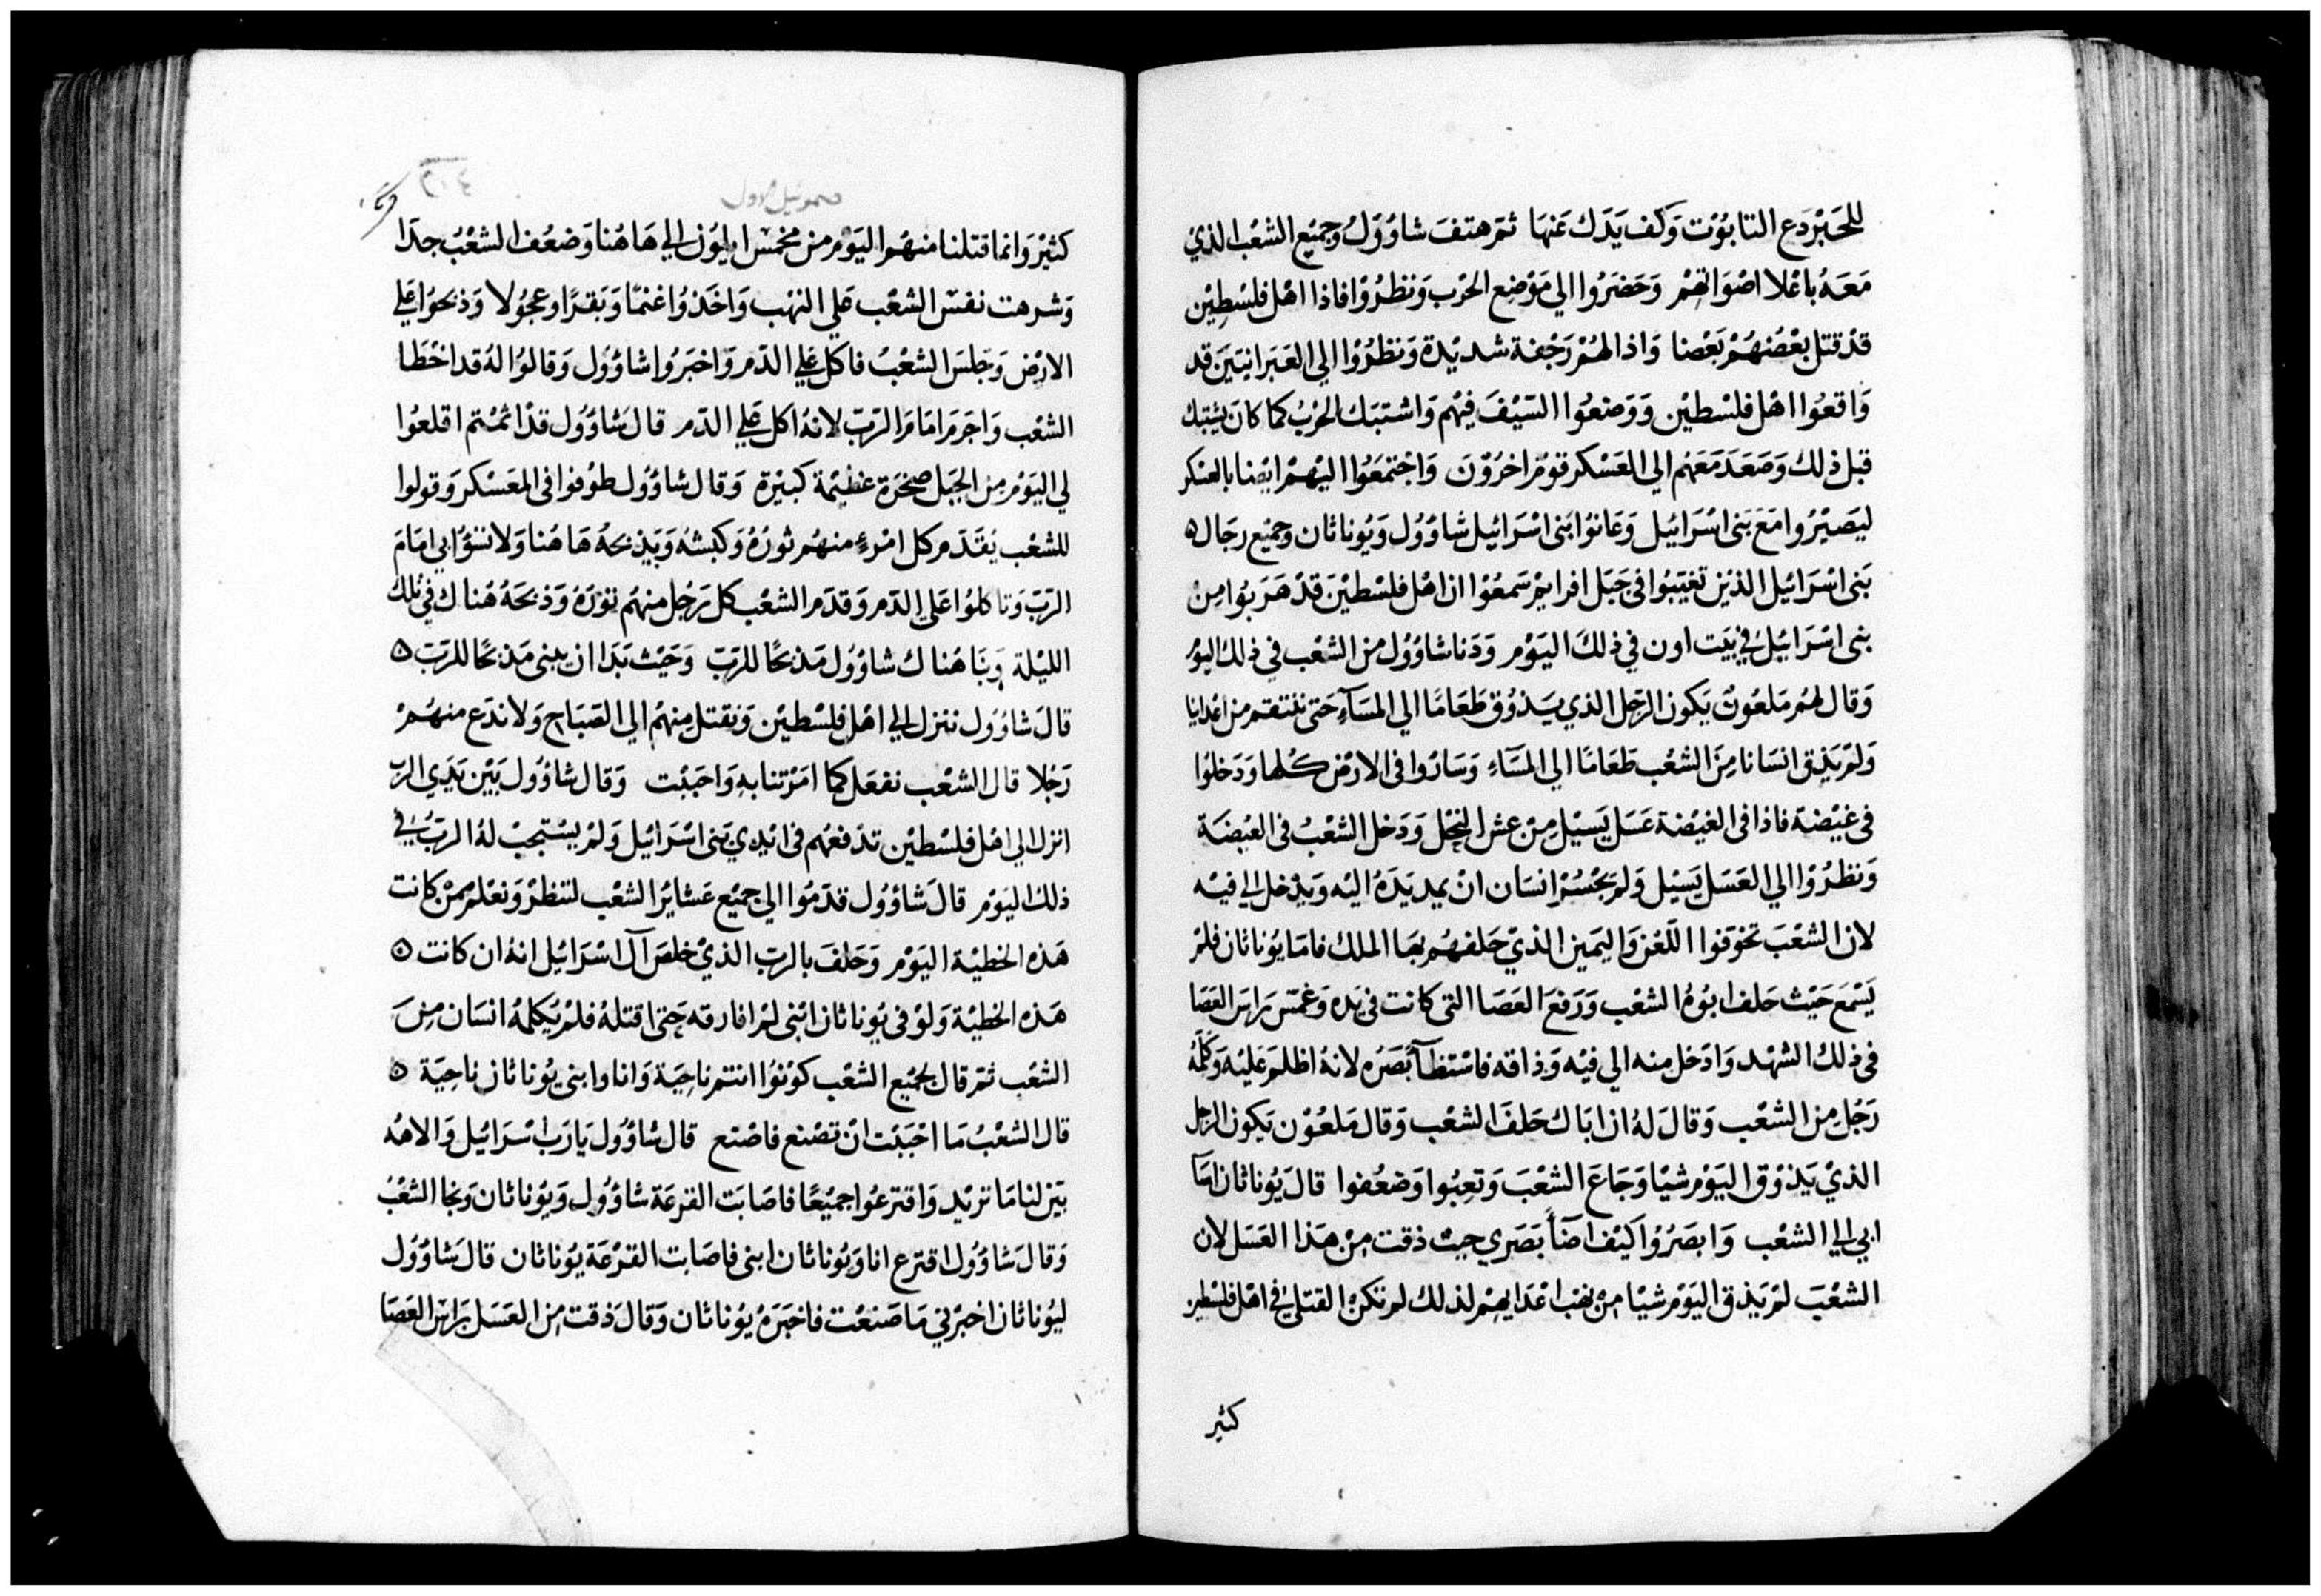 للحَبْر دَع التابوُت وَكف يَدَك عَنهَا ثم هتفَ شاوُول وجميْع الشعْب الذيْ
مَعَهُ باعْلا اصْوَاتهمْ وَحَضَرُوا الي مَوْضِع الحَرْب وَنظرُوْا فاذا اهْل فلسْطِيْن
قدْ قتل بعْضهُمْ بَعْضا وَاذا لهُمْ رَجْفة شديْدة وَنظرُوْا الي العَبرَانيَيَن قد
وَاقعُوا اهْل فلسْطيْن وَوَضعُوا السَيْفَ فيْهم وَاشْتبَك الحَرْبُ كما كانَ يشتبك
قبل ذلك وَصَعَدَ مَعَهُم الي العَسْكر قوْم اخرُوْنَ وَاجْتمَعُوا اليْهمْ ايْضا بالعسْكر
ليَصيْرُوا مَعَ بَني اسْرَائيل وَعَانوُا بَني اسْرَائيل شاوُول وَيوُناثان وجميْع رجَال ه
بَني اسْرَائيل الذيْن تغيَبُوا في جَبَل افرايم سَمعُوْا ان اهْل فلسْطيْن قدْ هَرَبوُا منْ
بني اسْرَائيل في بَيت اون في ذلكَ اليَوْم وَدَنا شاوُول من الشعْب في ذلك اليوْم
وَقال لهُم مَلعُونٌ يَكون الرَجل الذي يَذوُق طَعَامًا الي المسَآء حَتى ننتقم من اعْدائنا
وَلم يَذق انسَانا منَ الشعْب طَعَامًا الي المسَآء وَسَارُوا في الارْض كلها وَدَخلوُا
في غيْضة فاذا في الغيْضة عَسَل يَسيْل منْ عش النحْل وَدَخل الشعْبُ في الغيْضَة
وَنظرُوْا الي العَسَل يَسيْل وَلم يجْسُر انسَان انْ يمد يَدَهُ اليْه وَيدْخل الي فيْه
لان الشعْبَ تخوَفوا اللعْن وَاليَمين الذيْ حَلفهُم بهَا الملك فامَا يوُناثان فلمْ
يَسْمَع حَيْث حَلف ابوُهُ الشعْب وَرَفعَ العَصَا التي كانت في يَده وَغمَسَ رَاسَ العَصَا
في ذلكَ الشهْد وَادْخل منه الي فيْه وَذاقه فاسْتضآ بَصَرُه لانهُ اظلمَ عَليْه وَكلمَهُ
رَجُل من الشعْب وَقالَ لهُ ان ابَاك حَلفَ الشعْب وَقال مَلعُوْن يَكون الرجل
الذيْ يَذوْق اليَوْم شيْا وَجَاعَ الشعْبَ وَتعبُوا وَضعُفوا قالَ يوُناثان اسَآ
ابي الي الشعْب وَابصَرُوْا كَيْف اضآ بَصَري حيث ذقت منْ هَذا العَسَل لان
الشعْبَ لمْ يَذق اليَوْم شيْا منْ نهْب اعْدَايهمْ لذلك لم تكنْ القتلي في اهْل فلسْطين
كثير
صموئيل الاول
٣١٤
كثيْر وَانما قتلنا منهُم اليَوْم من مخمس ايليُون الي هَاهُنا وَضعُف الشعْبُ جدَا
وَشرهت نفسْ الشعْب عَلي النهْب وَاخَذوُا غنمًا وَبقرًا وعجُولا وَذبحُوا عَلي
الارْض وَجَلسَ الشعْبُ فاكل عَلي الدَم وَاخبَرُوا شاوُول وَقالوُا لهُ قد اخْطَا
الشعْب وَاجَرم امَامَ الرَب لانهُ اكل عَلي الدَم قال شاوُول قدْ اثمْتم اقلعُوا
لي اليَوْم من الجَبَل صخرَة عظيْمة كبيْرة وَقال شاوُول طوُفوا في المعَسْكر وَقولوا
للشعْب يُقدَم كل امْرءٍ منهُم ثوْرَهُ وَكبشهُ وَيذبحهُ هَاهُنا وَلا تسؤا بي امَامَ
الرَب وَتاكلوُا عَلي الدَم وَقدَم الشعْب كل رَجُل منهُم ثوْرَهُ وَذبحَهُ هُناك في تلكَ
الليْلة وَبنَا هُناك شاوُول مَذبحًا للرَب وَحَيْث بَدَا ان يبني مَذبحًا للرَب ه
قالَ شاوُول ننزل الي اهْل فلسْطيْن وَنقتل منهُم الي الصَباح وَلا ندَع منهُمْ
رَجُلا قال الشعْب نفعَل كما امَرْتنا به وَاحبَبْت وَقال شاوُول بَيْن يَدَي الرب
انزل الي اهْل فلسْطيْن تدْفعهُم في ايْدي بَني اسْرَائيل وَلمْ يسْتجبْ لهُ الرَبُ في
ذلك اليَوْم قالَ شاوُول قدّمُوا الي جميْع عَشايرُ الشعْب لننظرْ وَنعْلم ممنْ كانت
هَذه الخطيْة اليَوْم وَحَلفَ بالرب الذيْ خلصَ آل اسْرَائيل انهُ ان كانت ه
هَذه الخطيْة وَلوْ في يوُناثان ابْني لمْ افارقه حَتى اقتلهُ فلمْ يُكلمهُ انسَان منَ
الشعْب ثم قال لجميْع الشعْب كوْنوُا انتم ناحِيَة وَانا وابني يوُناثان ناحِيَة ه
قال الشعْبُ مَا احْبَبْت انْ تصْنع فاصْنع قال شاوُول يَا رَب اسْرَائيل وَالاههُ
بَيَن لنا مَا تريْد وَاقترعُوا جميْعًا فاصَابَت القرعَة شاوُول وَيوُناثان وَنجا الشعْبُ
وَقالَ شاوُول اقترع انا وَيوُناثان ابني فاصَابت القرْعَة يوُناثان قالَ شاوُول
ليوُناثان اخبرْني مَا صَنعْت فاخبَرَهُ يوُناثان وَقالَ ذقت من العَسَل برَاس العَصَا